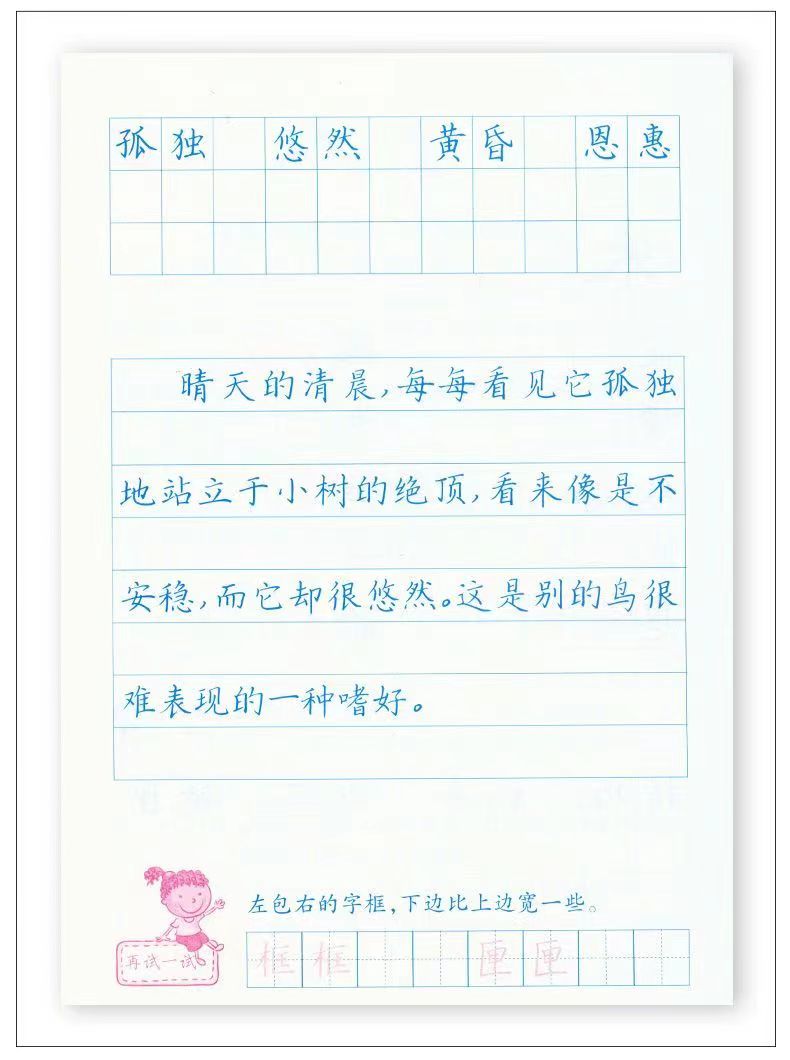 孤独 悠然 黄昏 恩惠
晴天的清晨,每每看见它孤独
地站立于小树的绝顶,看来像是不
安稳,而它却很悠然。这是别的鸟很
难表现的一种嗜好。
左包右的字框,下边比上边宽一些。
再试一试
框框 匣匣